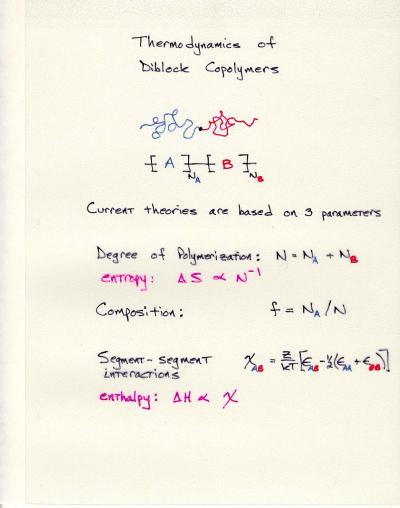 Thermodynamics of
Diblock Copolymers
-[ A ]-N_A-[ B ]-N_B
Current theories are based on 3 parameters
Degree of Polymerization: N = N_A + N_B
entropy: ΔS ∝ N^-1
Composition: f = N_A/N
Segment-segment interactions χ_AB = z/kT [ε_AB - ½(ε_AA + ε_BB)]
enthalpy: ΔH ∝ χ